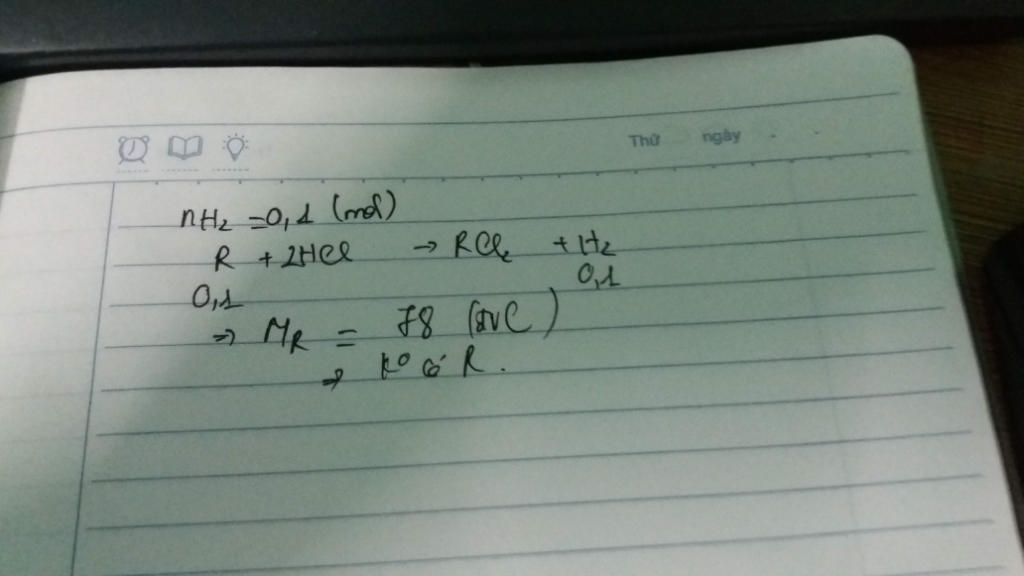 Thứ ngày
nH₂ = 0,1 (mol)
R + 2HCl → RCl₂ + H₂
0,1 0,1
⇒ MR = 78 (đvC)
⇒ k° có R.